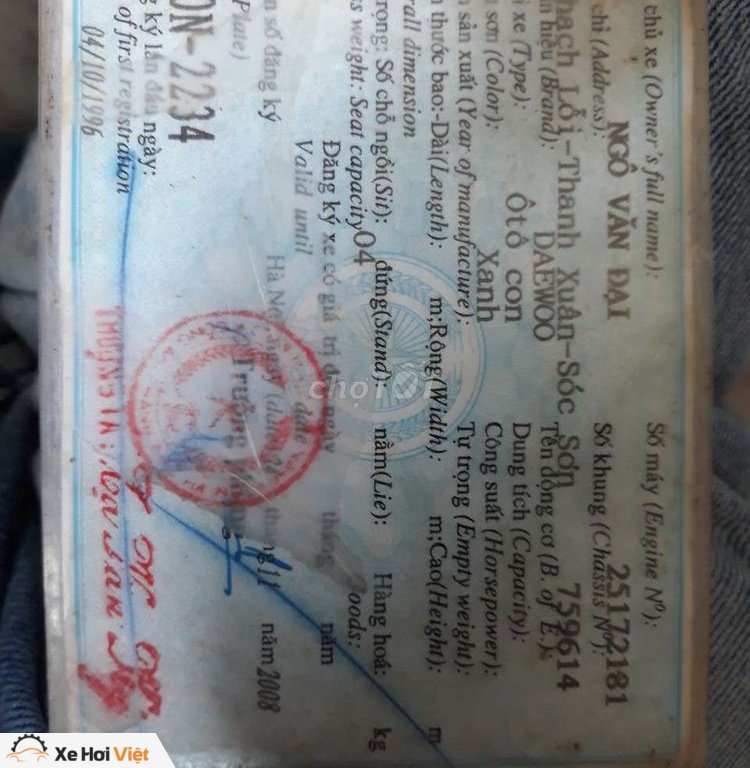 chủ xe (Owner's full name):
NGÔ VĂN ĐẠI
chỉ (Address):
hạch Lỗi-Thanh Xuân-Sóc Sơn
hiệu (Brand): DAEWOO
i xe (Type): Ôtô con
sơn (Color): Xanh
sản xuất (Year of manufacture):
thước bao:-Dài(Length): m;Rộng(Width): m;Cao(Height): m
rall dimension
rọng: Số chỗ ngồi(Sit): đứng(Stand): nằm(Lie): Hàng hoá: kg
ss weight: Seat capacity 04 Goods:
Số máy (Engine Nº):
25172181
Số khung (Chassis Nº):
759614
Tên động cơ (B. of E.):
Dung tích (Capacity):
Công suất (Horsepower):
Tự trọng (Empty weight):
Đăng ký xe có giá trị đến ngày tháng năm
Valid until date
n số đăng ký
Plate)
ON-2234
g ký lần đầu ngày:
of first registration
04/10/1996
Hà Nội, ngày tháng 11 năm 2008
Trưởng
chợTỐT
Xe Hơi Việt